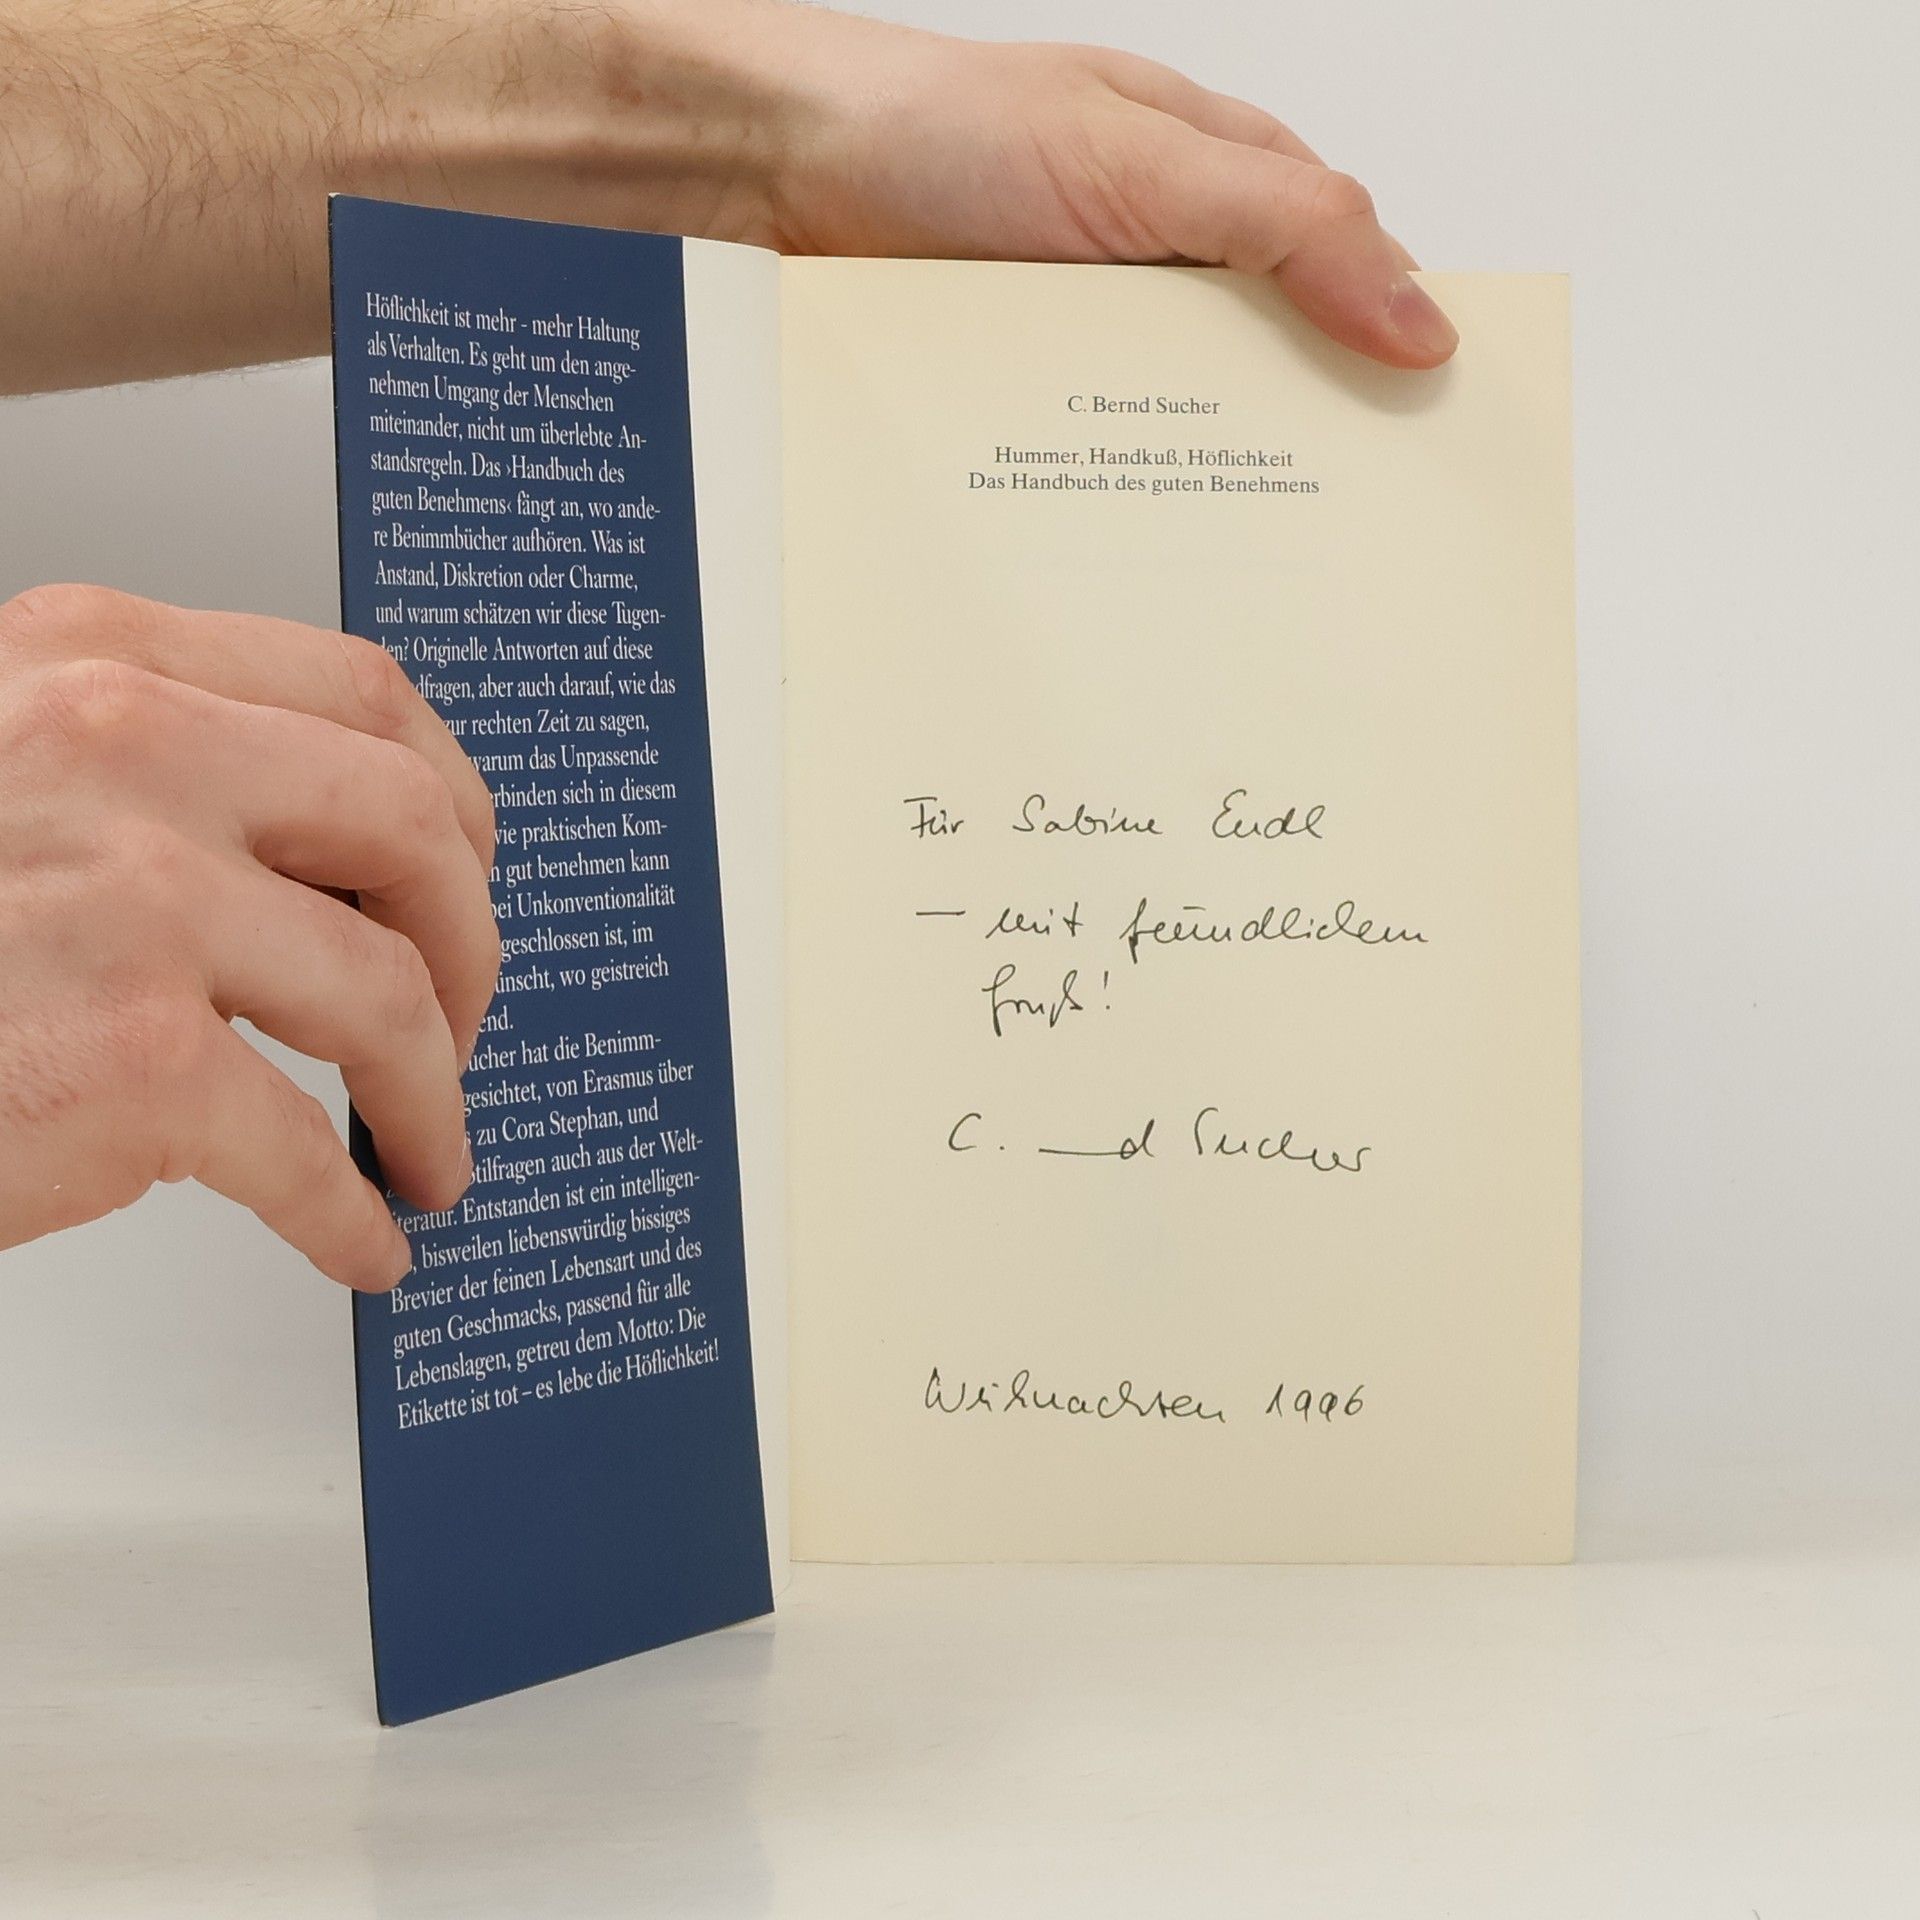 Höflichkeit ist mehr - mehr Haltung
als Verhalten. Es geht um den ange-
nehmen Umgang der Menschen
miteinander, nicht um überlebte An-
standsregeln. Das ›Handbuch des
guten Benehmens‹ fängt an, wo ande-
re Benimmbücher aufhören. Was ist
Anstand, Diskretion oder Charme,
und warum schätzen wir diese Tugen-
en? Originelle Antworten auf diese
dfragen, aber auch darauf, wie das
zur rechten Zeit zu sagen,
warum das Unpassende
rbinden sich in diesem
wie praktischen Kom-
n gut benehmen kann
bei Unkonventionalität
geschlossen ist, im
ünscht, wo geistreich
end.
ucher hat die Benimm-
gesichtet, von Erasmus über
s zu Cora Stephan, und
Stilfragen auch aus der Welt-
iteratur. Entstanden ist ein intelligen-
, bisweilen liebenswürdig bissiges
Brevier der feinen Lebensart und des
guten Geschmacks, passend für alle
Lebenslagen, getreu dem Motto: Die
Etikette ist tot – es lebe die Höflichkeit!
C. Bernd Sucher
Hummer, Handkuß, Höflichkeit
Das Handbuch des guten Benehmens
Für Sabine Endl
– mit freundlichem
Gruß!
C. Bernd Sucher
Weihnachten 1996